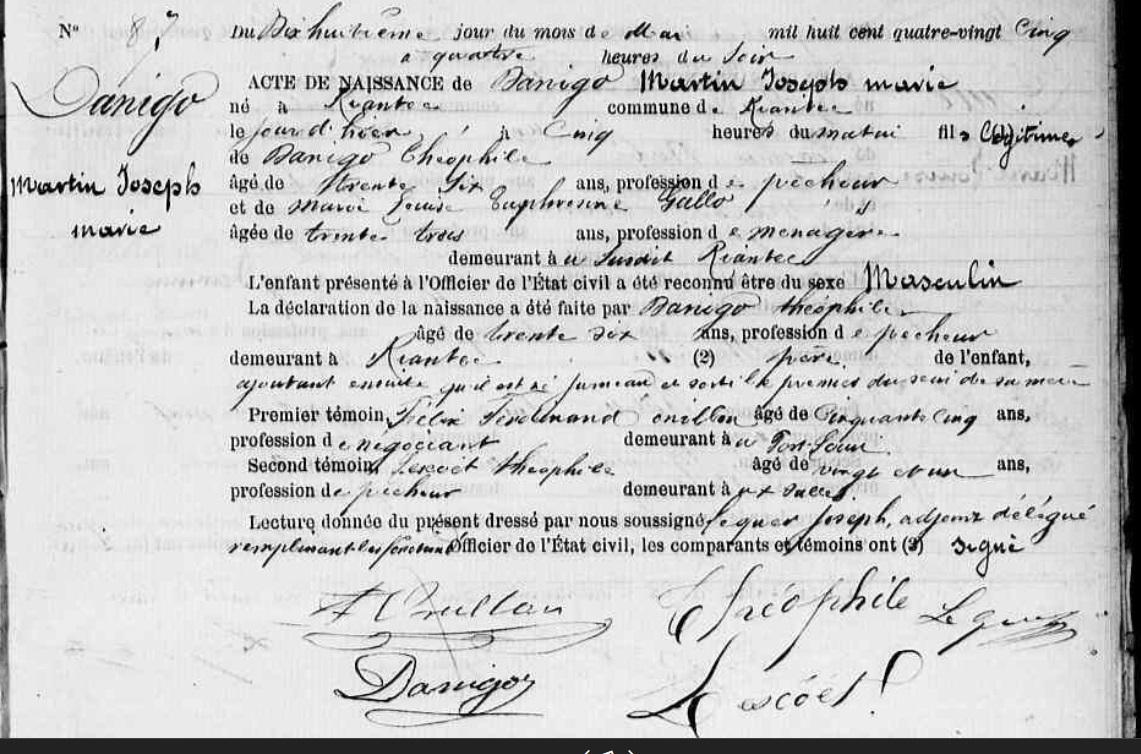 N° 87
Du Dix huitième jour du mois de Mai mil huit cent quatre-vingt Cinq
à quatre heures du Soir
ACTE DE NAISSANCE de Danigo Martin Joseph marie
né à Riantec commune de Riantec
le jour d'hier, à Cinq heures du matin fils légitime
de Danigo Théophile
âgé de trente six ans, profession de pêcheur
et de marie Louise Euphrosine Gallo
âgée de trente trois ans, profession de ménagère
demeurant à Susdit Riantec
L'enfant présenté à l'Officier de l'État civil a été reconnu être du sexe Masculin
La déclaration de la naissance a été faite par Danigo théophile
âgé de trente six ans, profession de pêcheur
demeurant à Riantec (2) père de l'enfant,
ajoutant ensuite qu'il est né jumeau et sorti le premier du sein de sa mère
Premier témoin, Félix Ferdinand âgé de Cinquante Cinq ans,
profession de négociant demeurant à Port-Louis
Second témoin, Lescoët théophile âgé de vingt et un ans,
profession de pêcheur demeurant à
Lecture donnée du présent dressé par nous soussigné Le quer Joseph, adjoint délégué
remplissant les fonctions Officier de l'État civil, les comparants et témoins ont (3) signé
Danigo
Martin Joseph
marie
Théophile Le quer
Danigo Lescoët